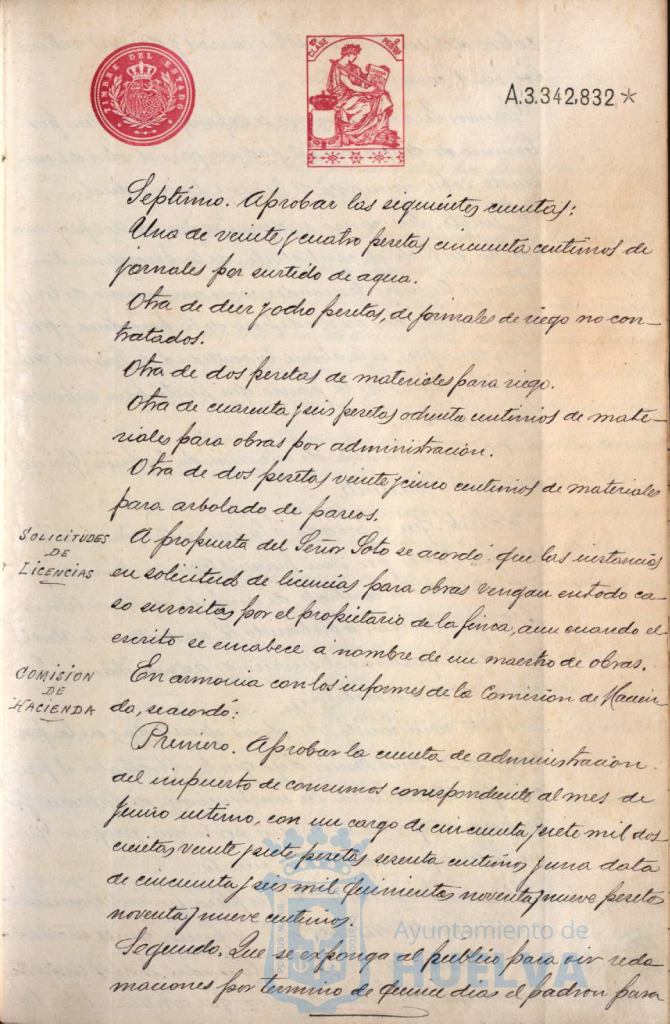 TIMBRE DEL ESTADO
10ª CLASE
2 PESETAS
A.3.342,832*
Septimo. Aprobar las siguientes cuentas:
Una de veinte y cuatro pesetas cincuenta centimos de
jornales por surtido de agua.
Otra de diez y ocho pesetas, de jornales de riego no con-
tratados.
Otra de dos pesetas de materiales para riego.
Otra de cuarenta y seis pesetas ochenta centimos de mate-
riales para obras por administración.
Otra de dos pesetas veinte y cinco centimos de materiales
para arbolado de paseos.
SOLICITUDES
DE
LICENCIAS
A propuesta del Señor Soto se acordó que las instancias
en solicitud de licencias para obras vengan en todo ca-
so suscritas por el propietario de la finca, aun cuando el
escrito se encabece á nombre de un maestro de obras.
COMISION
DE
HACIENDA
En armonia con los informes de la Comision de Hacien-
da, se acordó:
Primero. Aprobar la cuenta de administracion
del impuesto de consumos correspondiente al mes de
Junio ultimo, con un cargo de cincuenta y siete mil dos
cientas veinte y siete pesetas sesenta centimos y una data
de cincuenta y seis mil quinientas noventa y nueve pesetas
noventa y nueve centimos.
Segundo. Que se exponga al publico para oir recla
maciones por termino de quince dias el padron para
Ayuntamiento de
HUELVA